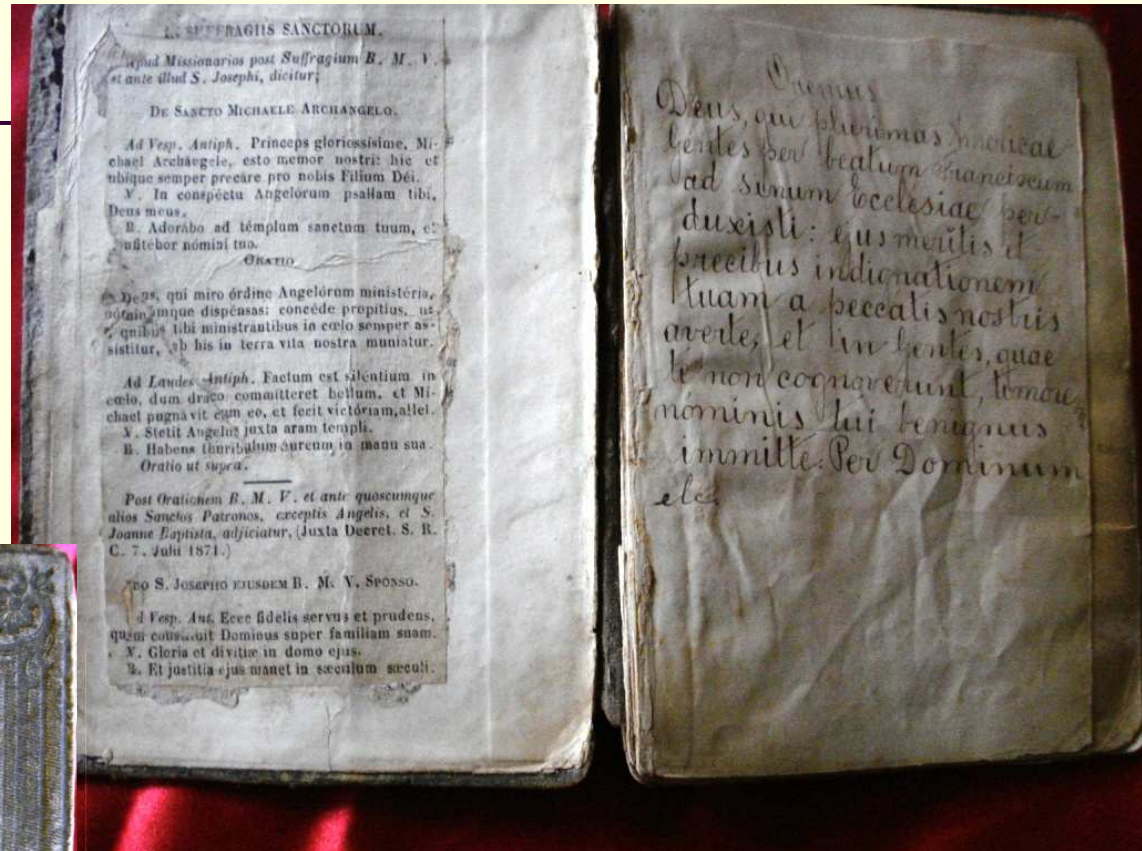 SUFFRAGIIS SANCTORUM.
Apud Missionarios post Suffragium B. M. V.
et ante illud S. Josephi, dicitur;
DE SANCTO MICHAELE ARCHANGELO.
Ad Vesp. Antiph. Princeps gloriosissime, Mi-
chael Archángele, esto memor nostri: hic et
ubique semper precáre pro nobis Filium Déi.
℣. In conspéctu Angelórum psallam tibi,
Deus meus.
℟. Adorábo ad témplum sanctum tuum, et
nfitébor nómini tuo.
ORATIO
Deus, qui miro órdine Angelórum ministéria,
hominumque dispénsas: concéde propítius, ut
quibus tibi ministrántibus in cœlo semper as-
sistitur, ab his in terra vita nostra muniatur.
Ad Laudes Antiph. Factum est siléntium in
cœlo, dum draco committeret bellum, et Mi-
chael pugnávit cum eo, et fecit victóriam, allel.
℣. Stetit Angelus juxta aram templi.
℟. Habens thuribulum áureum in manu sua.
Oratio ut supra.
Post Orationem B. M. V. et ante quoscumque
alios Sanctos Patronos, exceptis Angelis, et S.
Joanne Baptista, adjiciatur, (Juxta Decret. S. R.
C. 7. Julii 1871.)
S. JOSEPHO EJUSDEM B. M. V. SPONSO.
d Vesp. Ant. Ecce fidelis servus et prudens,
quem constituit Dominus super familiam suam.
℣. Gloria et divitiæ in domo ejus.
℟. Et justitia ejus manet in sæculum sæculi.
Oremus
Deus, qui plurimas Americae
Gentes per beatum Franciscum
ad sinum Ecclesiae per-
duxisti: ejus meritis et
precibus indignationem
tuam a peccatis nostris
averte, et in Gentes, quae
te non cognoverunt, timorem
nominis tui benignus
immitte. Per Dominum
etc.